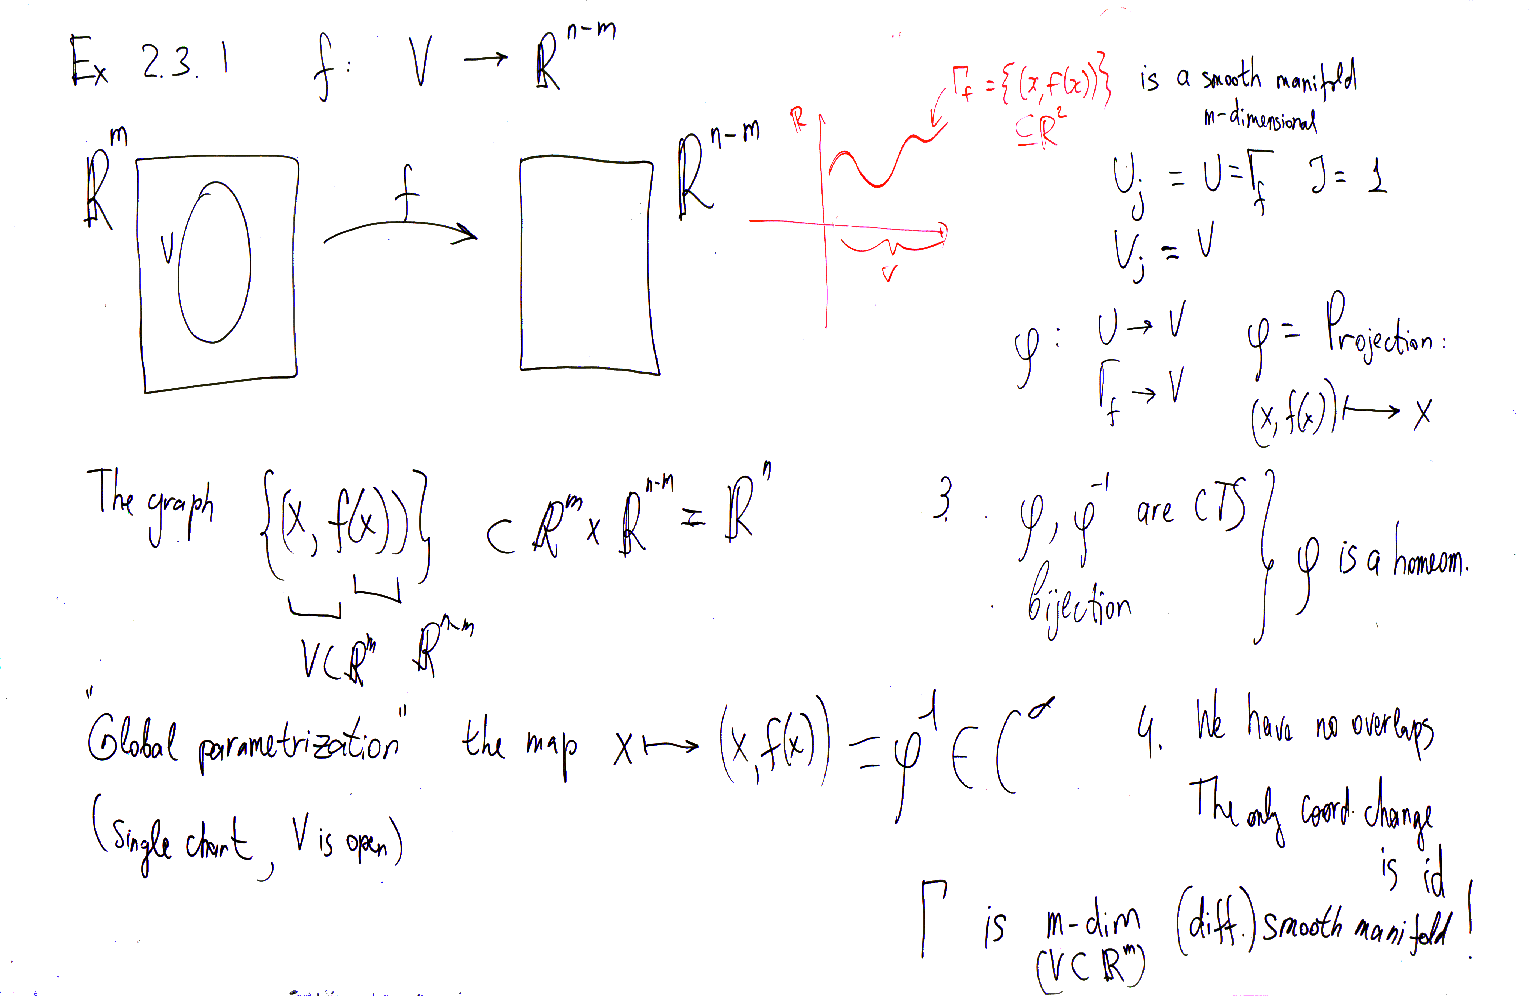 Ex 2.3.1 f: V → ℝⁿ⁻ᵐ
ℝᵐ
V
f
ℝⁿ⁻ᵐ
ℝ
Γ_f = {(x, f(x))}
⊆ ℝ²
V
is a smooth manifold
m-dimensional
U_j = U = Γ_f J = 1
V_j = V
φ: U → V
Γ_f → V
φ = Projection:
(x, f(x)) ↦ x
The graph {(x, f(x))} ⊂ ℝᵐ × ℝⁿ⁻ᵐ = ℝⁿ
V ⊂ ℝᵐ ℝⁿ⁻ᵐ
3. φ, φ⁻¹ are CTS
bijection
φ is a homeom.
"Global parametrization" the map x ↦ (x, f(x)) = φ⁻¹ ∈ C^∞
(single chart, V is open)
4. We have no overlaps
The only coord. change
is id
Γ is m-dim (diff.) smooth manifold!
(V ⊂ ℝᵐ)